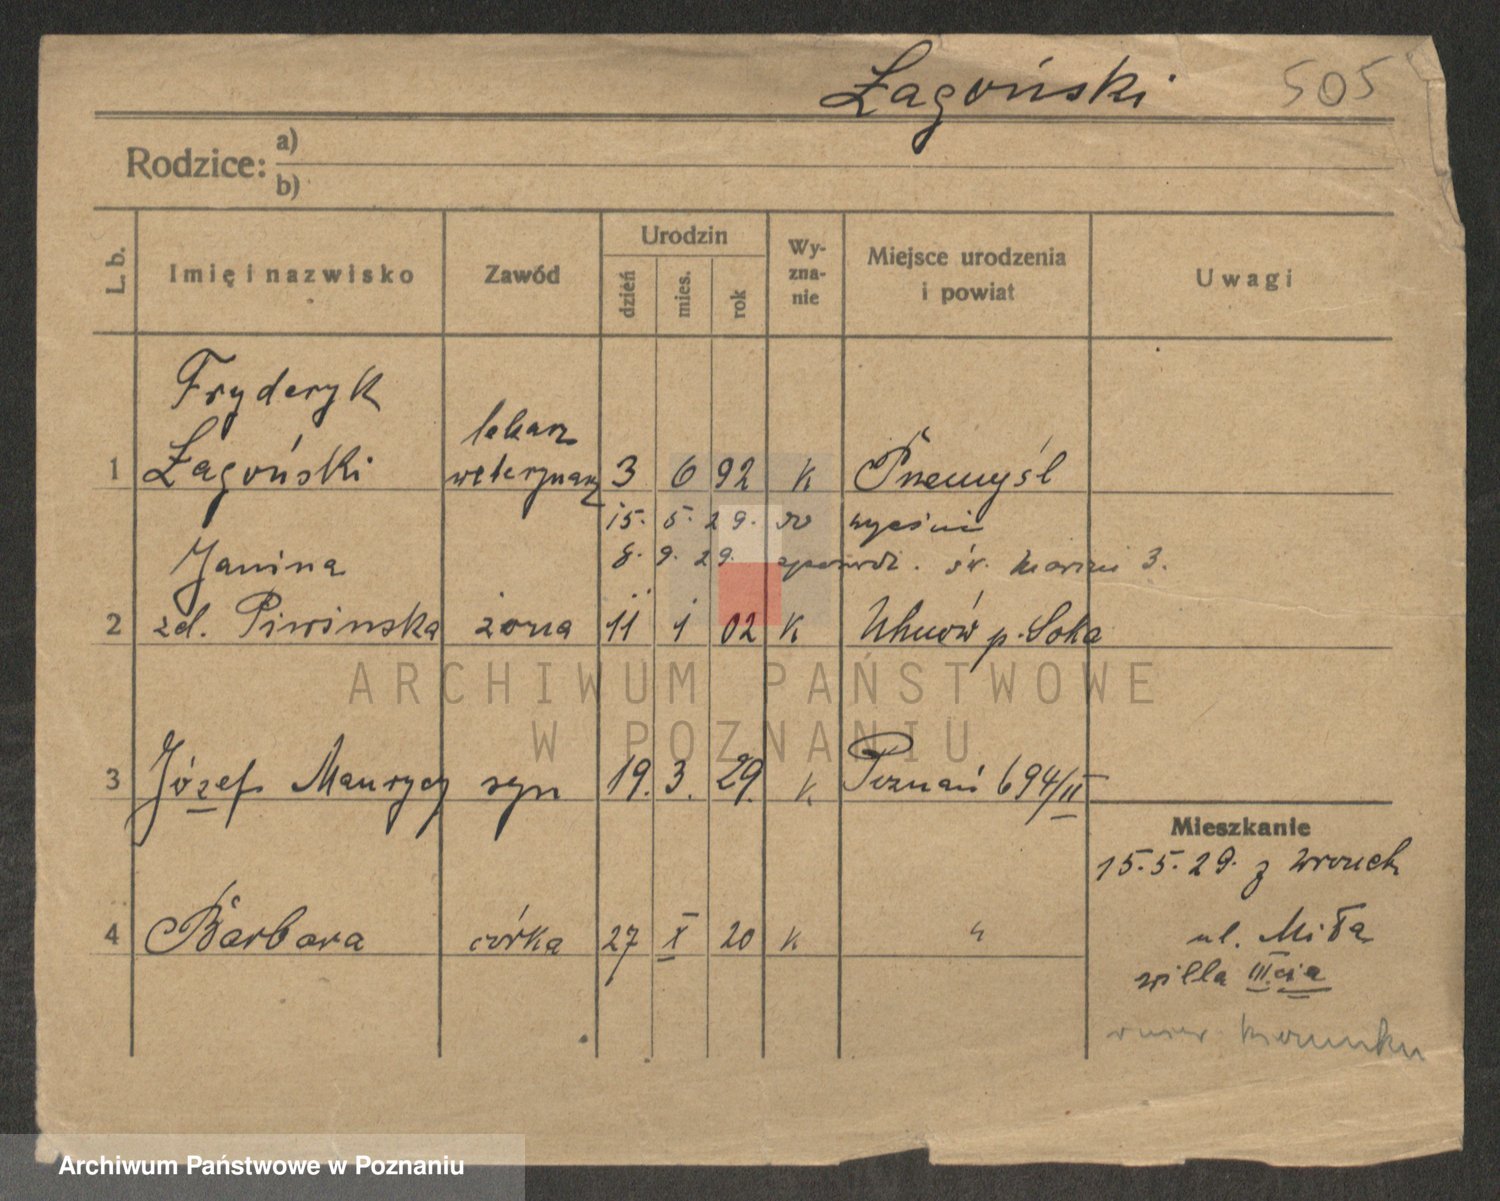 Łagoński 505
Rodzice: a)
b)
L. b. Imię i nazwisko Zawód Urodzin dzień mies. rok Wyznanie Miejsce urodzenia i powiat Uwagi
Fryderyk
lekarz
1 Łagoński weterynarz 3 6 92 K Przemyśl
15. 5. 29. do
Janina 8. 9. 29. św. Marcin 3.
2 zd. Piwinska żona 11 1 02 K Uhnów p. Soka
ARCHIWUM PAŃSTWOWE
W POZNANIU
3 Józef Maurycy syn 19. 3. 29. K Poznań 694/II
Mieszkanie
15.5.29. z
4 Barbara córka 27 X 20 K "
ul. Miła
willa III.cia
Archiwum Państwowe w Poznaniu